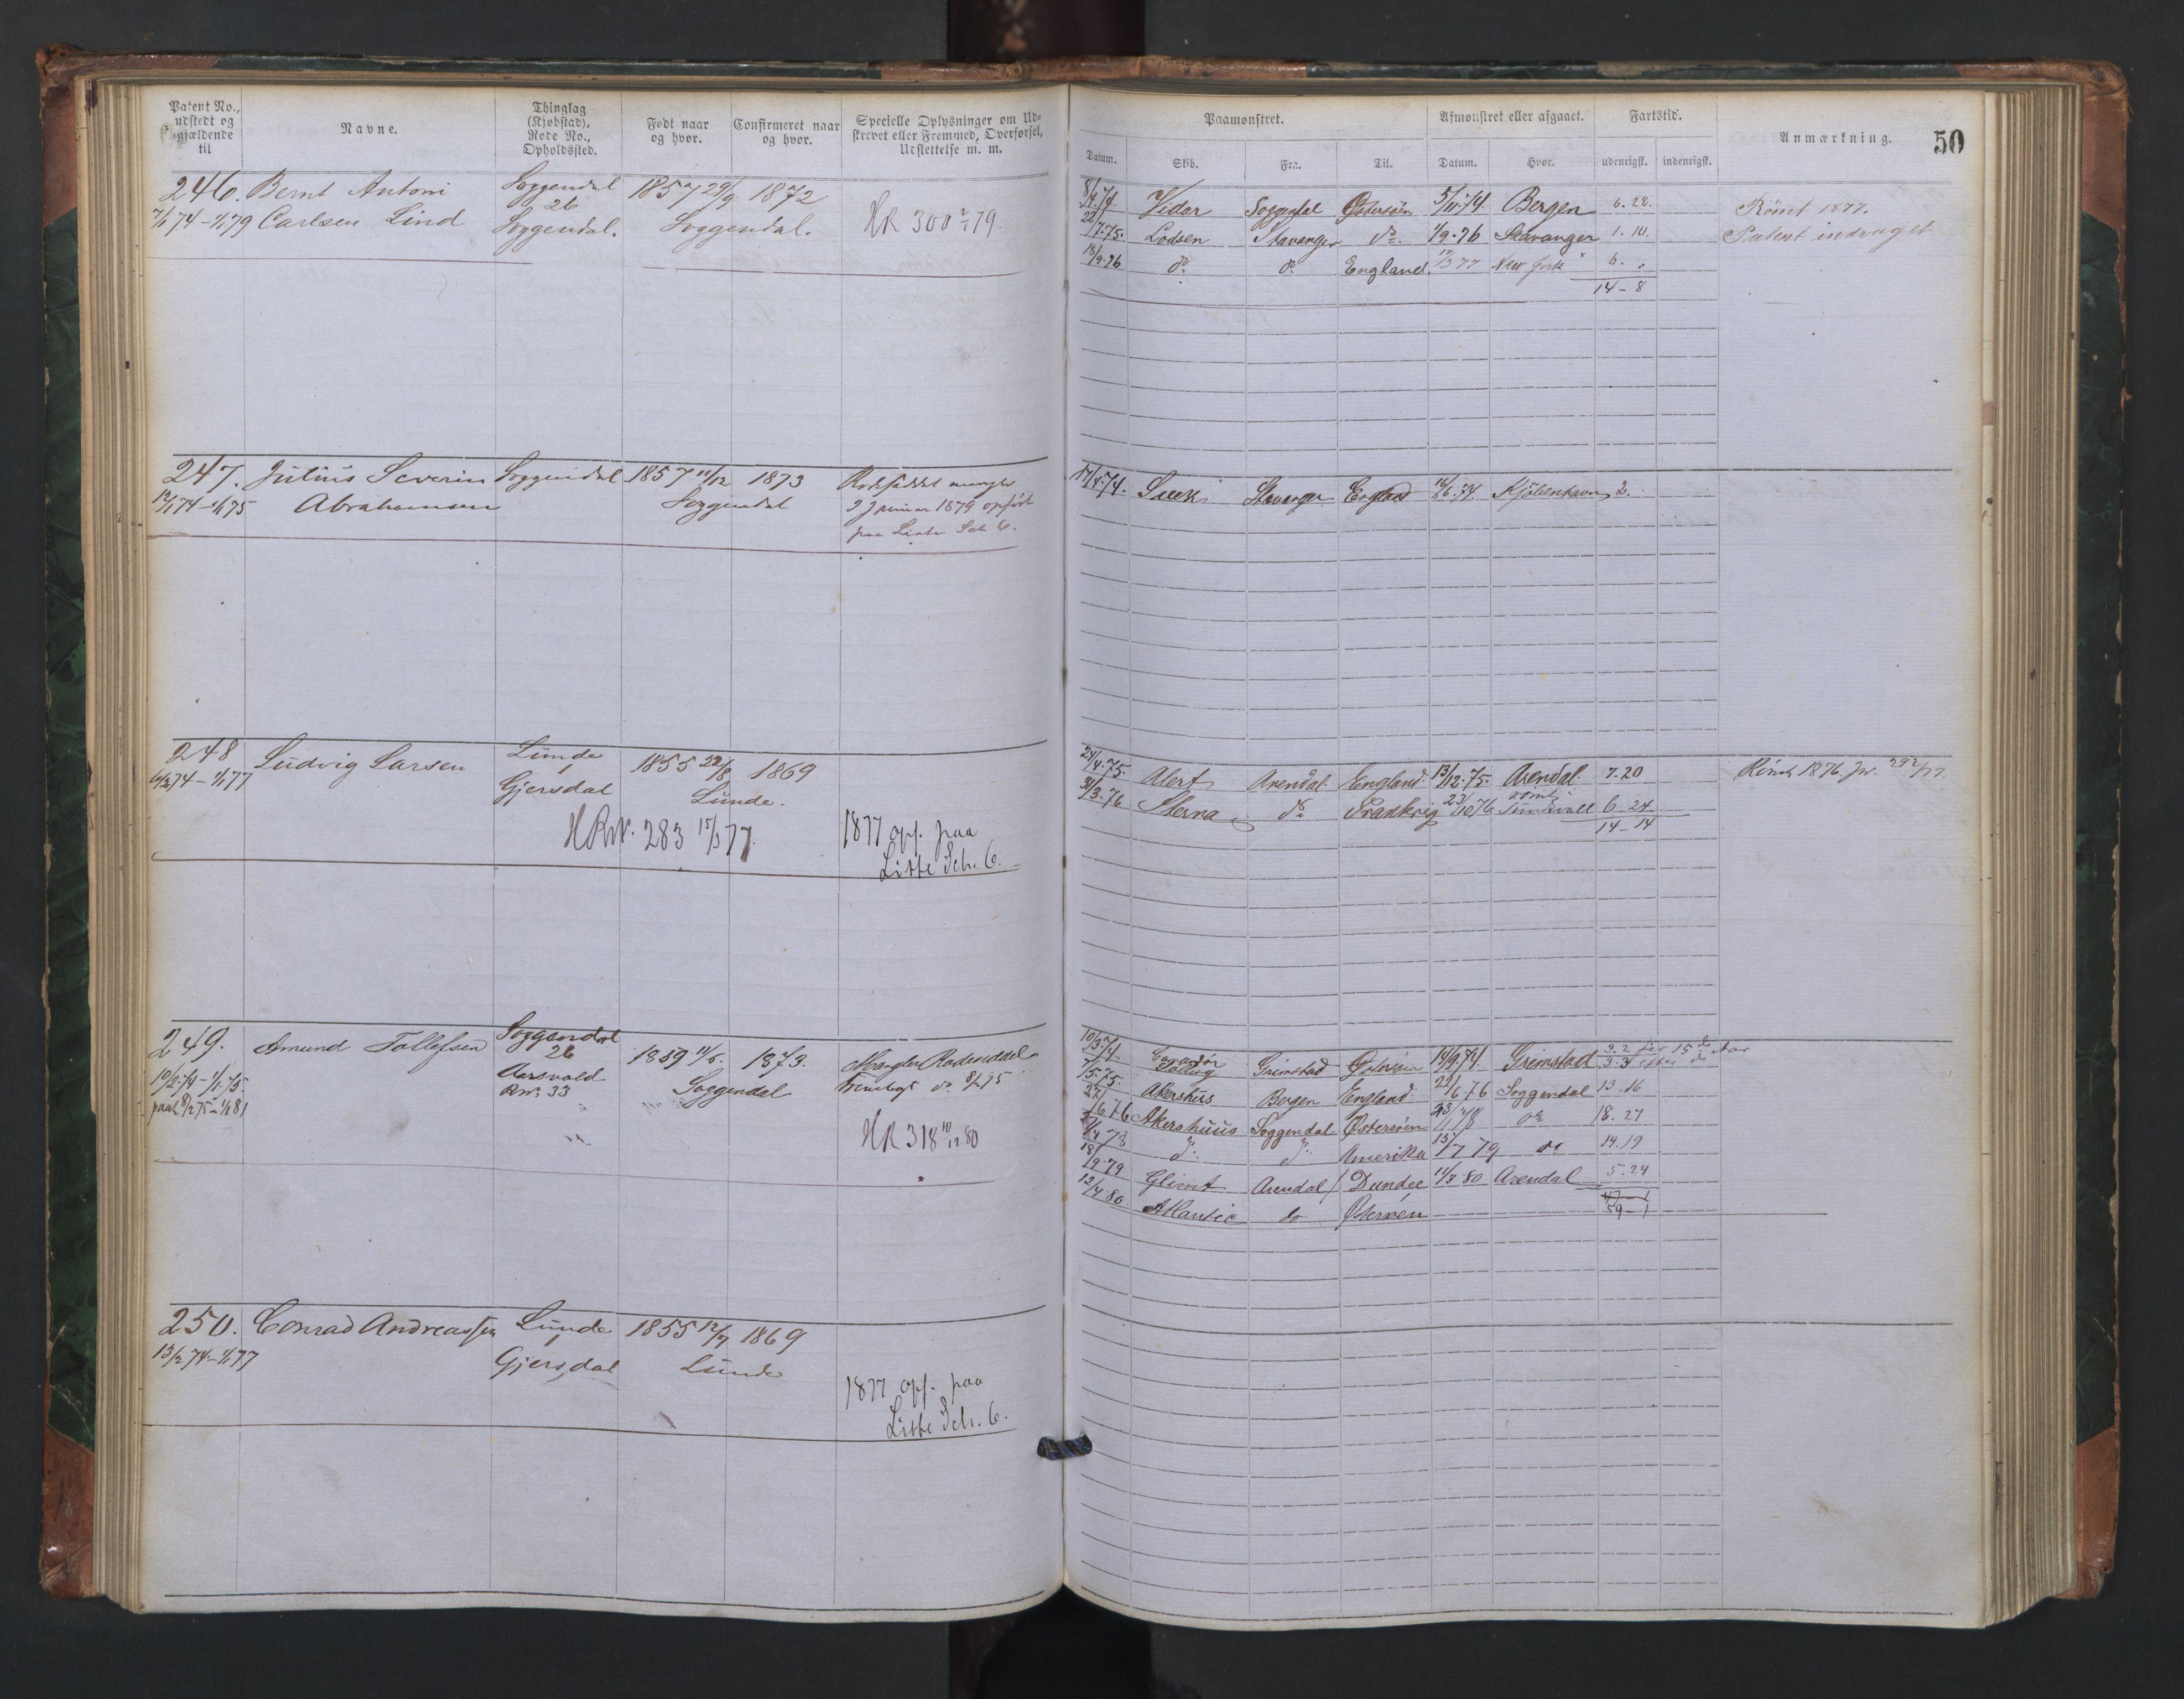 Patent No., udstedt og gjældende til
Navne.
Thinglag (Kjøbstad), Rode No., Opholdssted.
Født naar og hvor.
Confirmeret naar og hvor.
Specielle Oplysninger om Udskrevet eller Fremmed, Overførsel, Udslettelse m. m.
Paamønstret.
Afmønstret eller afgaaet.
Fartstid.
Anmærkning.
50
Datum. Skib. Fra. Til. Datum. Hvor. udenrigsk. indenrigsk.
246. Bernt Antoni Soggendal 1857 29/9 1872
26
7/1 74 - 1/1 79 Carlsen Lind Soggendal. Soggendal. HR 300 79
8/4 74 Vidar Soggendal Østersøen 5/11 74 Bergen 6. 28. Rømt 1877.
22/7 75. Lodsen Stavanger do 1/9 76 Stavanger 1. 10. Patent indraget
18/9 76 do do England 77 New York 6.
14 - 8
247. Julius Severin Soggendal 1857 11/12 1873
12/1 74 - 1/1 75 Abrahamsen Soggendal
Januar 1879 opført
paa Liste Sch 6.
17/4 74. Stavanger England 74. Kjöbenhavn 2.
248 Ludvig Larsen Lunde 1855 22/8 1869
1
6/2 74 - 1/1 77 Gjersdal Lunde.
HRNr. 283 77. 1877 opf. paa
Liste Sch. 6.
24/4 75. Alert Arendal England 13/12 75. Arendal 7. 20 Rømt 1876.
31/3 76 Sterna do Frankrig 23/10 76 rømt Sundsvall 6 - 24
14 - 14
249. Amund Tollefsen Soggendal 1859 11/5. 1873. Mangler Rodeseddel
26
Aarsvold Soggendal
RNo 33
HR 318 80
10/3 74. Grimstad Østersøen 14/9 74. Grimstad 3. 2 før 15de Aar
3. 3 efter do
7/5 75. Akershus Bergen England 22/6 76 Soggendal 13. 16
22/6 76 Akershuus Soggendal Østersøen 78 do 18. 27
78 do do Amerika 15/7 79 do 14. 19
18/9 79 Glimt Arendal Dundee 80 Arendal 5. 24
12/4 80. Atlantic do Østersøen 59 - 1
250. Conrad Andreassen Lunde 1855 12/7 1869
1
13/2 74 - 1/1 77 Gjersdal Lunde
1877 opf. paa
Liste Sch. 6.